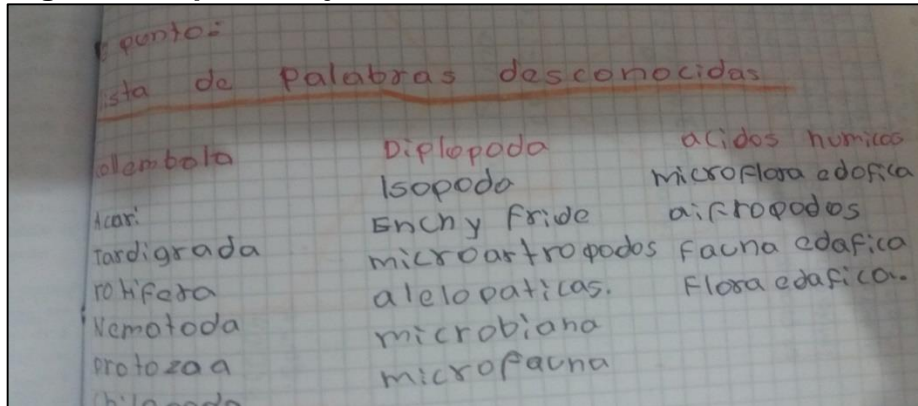 punto:
ista de palabras desconocidas
olembola
Acari
Tardigrada
rotifera
Nematoda
protozoa
Diplopoda
Isopoda
Enchy fride
microartropodos
alelopaticas.
microbiana
microfauna
acidos humicos
microflora edofica
Fauna edafica
Flora edafica.